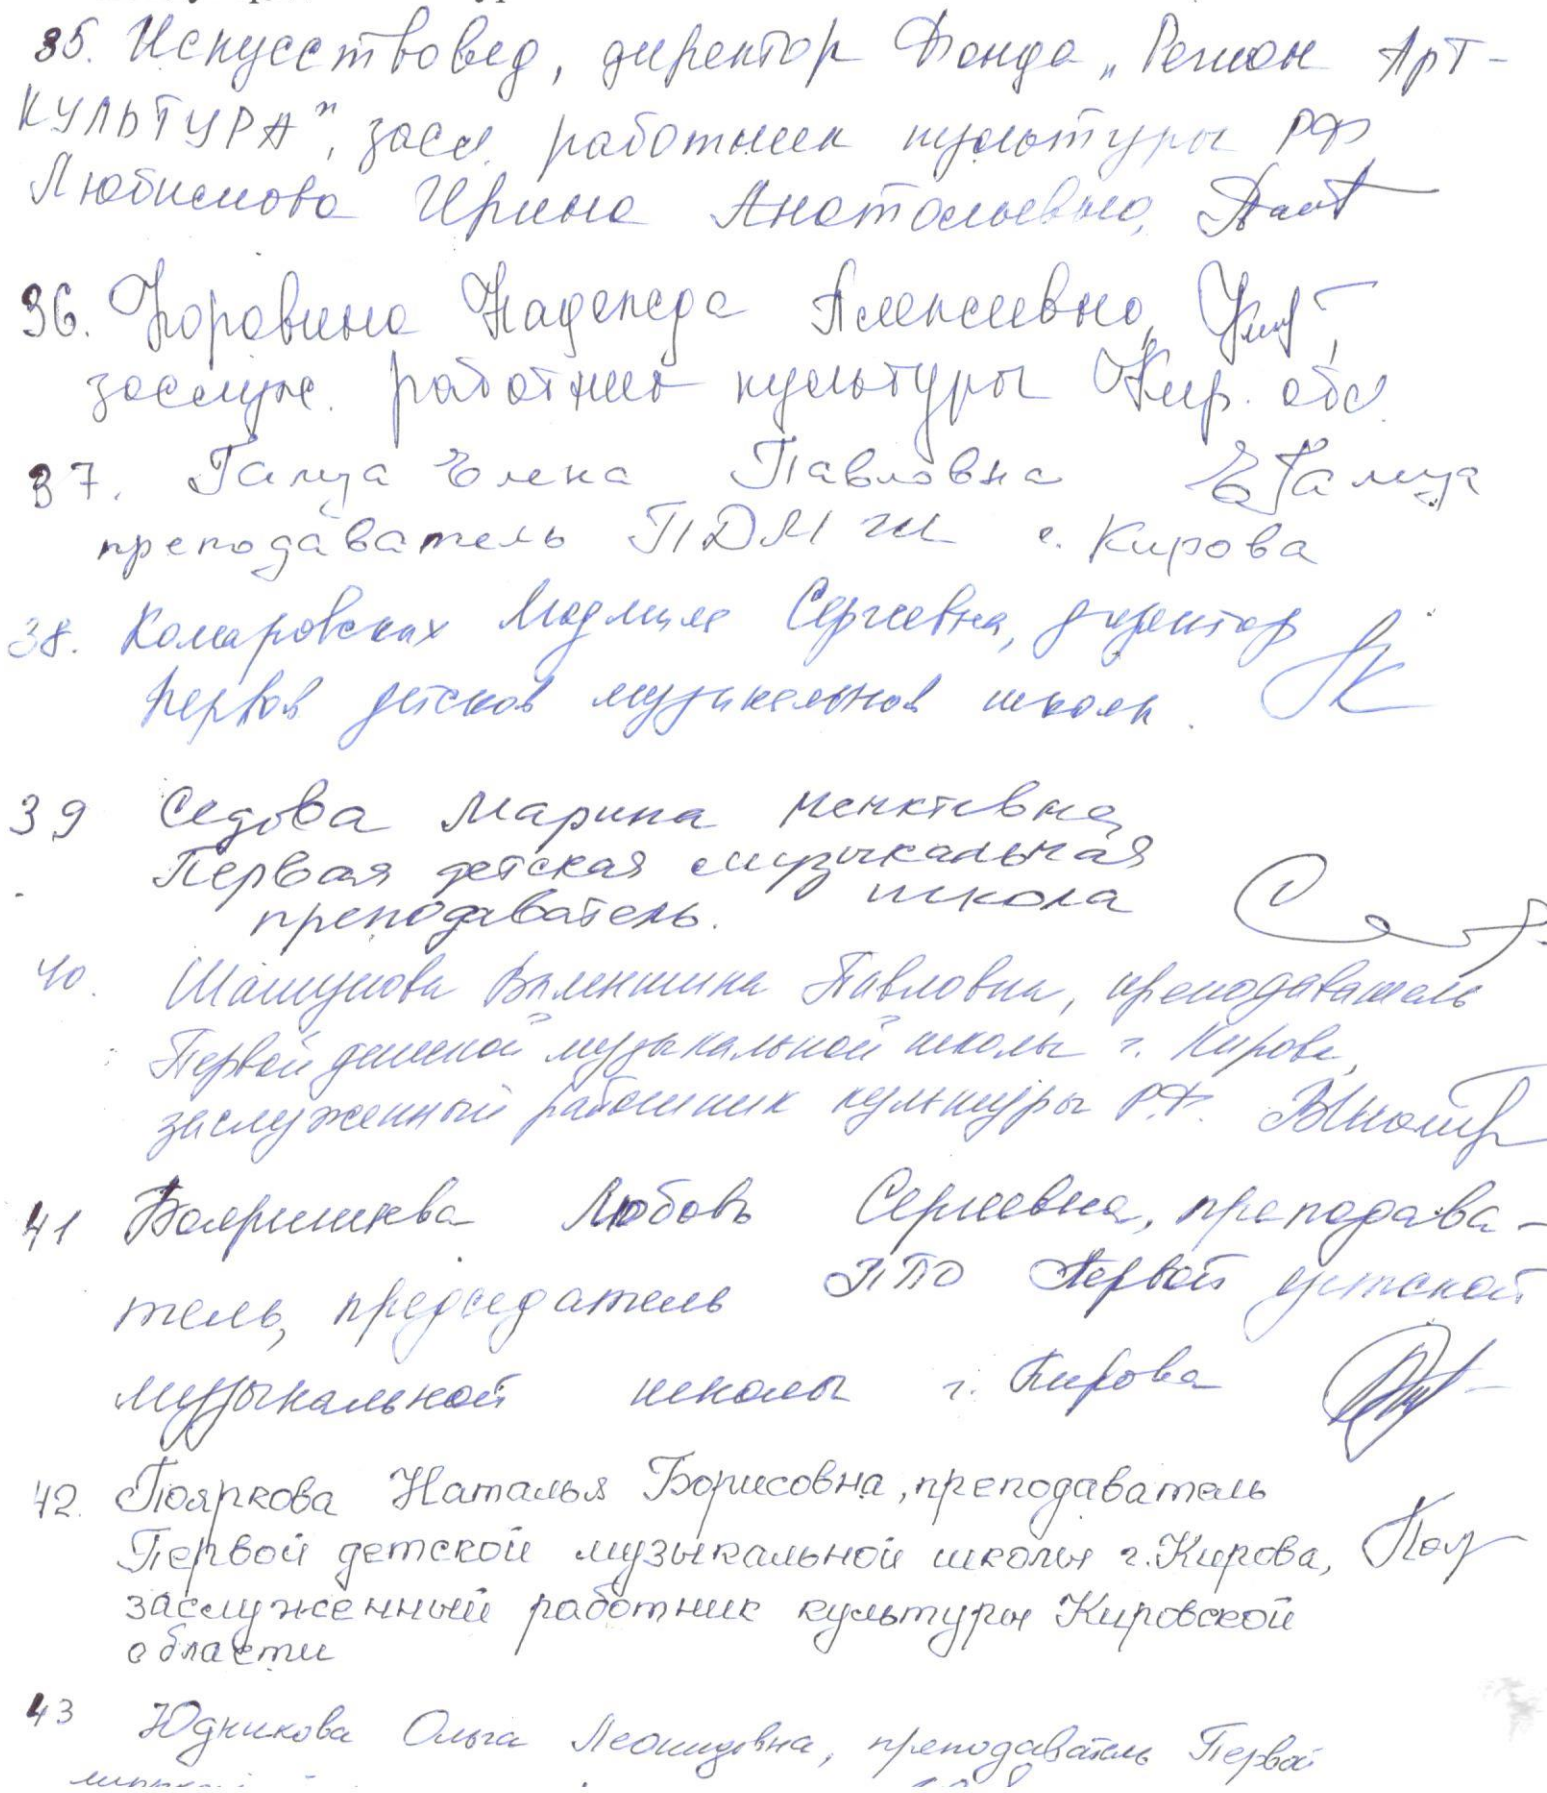 35. Искусствовед, директор Фонда „Регион Арт-
КУЛЬТУРА", засл. работник культуры РФ
Любимова Ирина Анатольевна,
36. Коровина Надежда Алексеевна,
заслуж. работник культуры Кир. обл.
37. Галца Елена Павловна
преподаватель ПДМШ г. Кирова
38. Комаровских Людмила Сергеевна, директор
Первой детской музыкальной школы.
39 Седова Марина
Первая детская музыкальная
преподаватель. школа
40. Валентина Павловна, преподаватель
Первой детской музыкальной школы г. Кирова,
заслуженный работник культуры Р.Ф.
41 Любовь Сергеевна, преподава-
тель, председатель Первой детской
музыкальной школы г. Кирова
42. Пояркова Наталья Борисовна, преподаватель
Первой детской музыкальной школы г. Кирова,
заслуженный работник культуры Кировской
области
43 Юдникова Ольга Леонидовна, преподаватель Первой